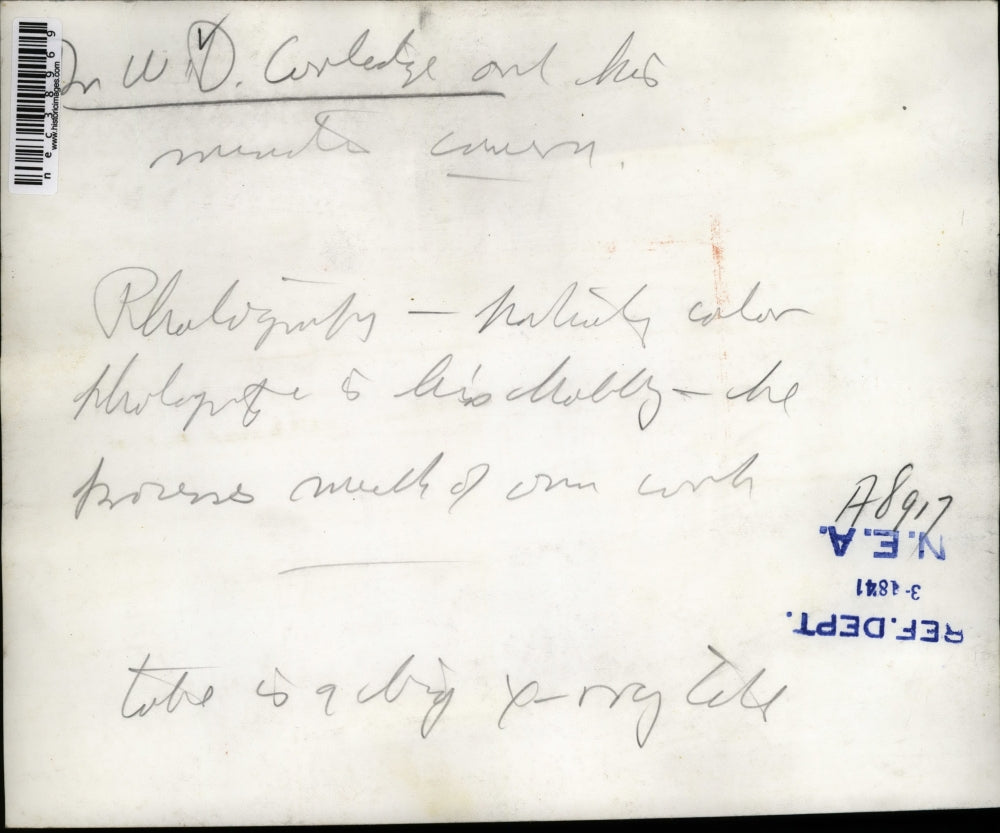 Dr W.D. Coolidge and his
minute camera.
Photography — particularly color
photography is his hobby — he
processes much of own work
tube is a big x-ray tube
A8917
N.E.A.
3-1841
REF. DEPT.
nec38969
www.historicimages.com